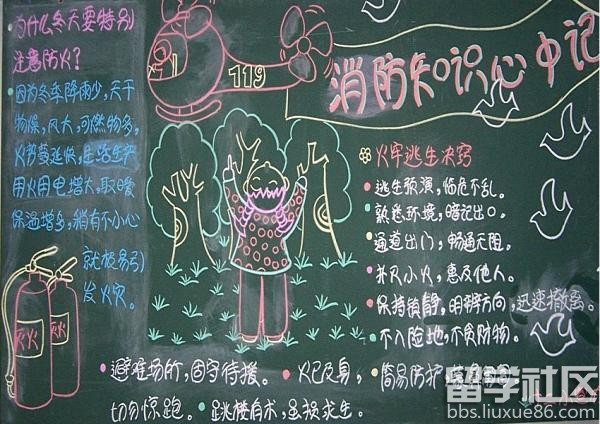 为什么冬天要特别
注意防火?
因为冬季降雨少,天干
物燥,风大,可燃物多,
火势蔓延快,生活生产
用火用电增大,取暖
保温增多,稍有不小心
就极易引
发火灾。
119
消防知识心中记
火牢逃生决窍
逃生预演,临危不乱。
熟悉环境,暗记出口。
通道出门,畅通无阻。
扑灭小火,惠及他人。
保持镇静,明辨方向,迅速撤离。
不入险地,不贪财物。
避难场所,固守待援。
火已及身,
切勿惊跑。
简易防护
跳楼有术,虽损求生。
灭火
火
留学社区
bbs.liuxue86.com